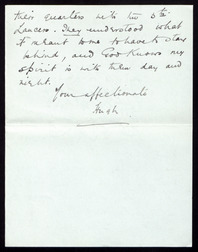 their quarters with the 5th
Lancers. They understood what
it meant to me to have to stay
behind, and God knows my
spirit is with them day and
night.
Your affectionate
Hugh